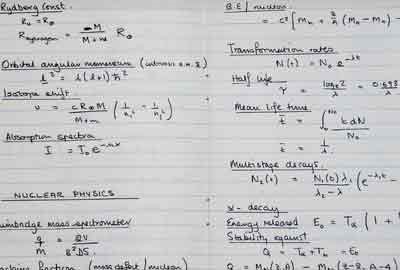 Rydberg Const.
R₀ = R∞
R hydrogen = M / M+m R∞
Orbital angular momentum (intrinsic
l² = l(l+1)ħ²
Isotope shift.
ν = cR∞M / M+m (1/n₁² - 1/n₂²)
Absorption spectra
I = I₀e^-nαx
NUCLEAR PHYSICS
Bainbridge mass spectrometer
q/M = 2V / B²DS
fraction (mass defect/nucleon)
B.E/nucleon
= c²[Mₙ + Z/A (Mₕ - Mₙ) -
Transformation rates
N(t) = N₀e^-λt
Half life
τ = logₑ2 / λ = 0.693 / λ
Mean life time
t̄ = ∫₀^N₀ t dN / N₀
t̄ = 1/λ
Multistage decays.
N₂(t) = N₁(0)λ₁ / λ₂ - λ₁ (e^-λ₁t -
α- decay
Energy released E₀ = Tα (1 +
Stability against
Q = Tα + Tₕ = E₀
Q = Mₙ(Z,A) - Mₙ(Z-2, A-4)